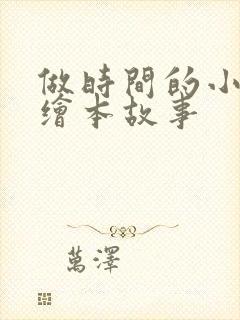 做時間的小
繪本故事
萬澤